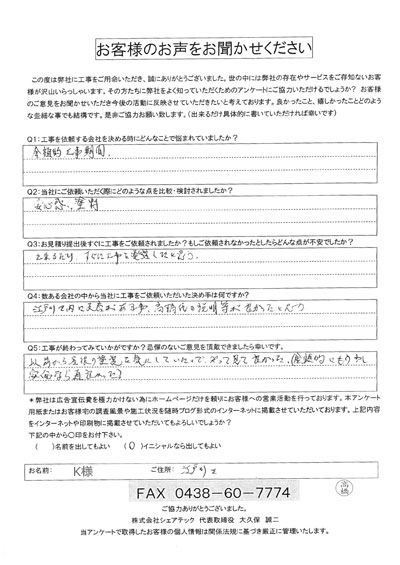 お客様のお声をお聞かせください
この度は弊社に工事をご用命いただき、誠にありがとうございました。世の中には弊社の存在やサービスをご存知ないお客
様が沢山いらっしゃいます。その方たちに弊社をよく知っていただくためのアンケートにご協力いただけるでしょうか？ お客様
のご意見をお聞かせいただき今後の活動に反映させていただきたいと考えております。良かったこと、嬉しかったことどのよう
な些細な事でも結構です。是非ご協力お願い致します。（出来るだけ具体的に書いていただければ幸いです）
Q1：工事を依頼する会社を決める時にどんなことで悩まれていましたか？
金額的 工事期間、
Q2：当社にご依頼いただく際にどのような点を比較・検討されましたか？
安心感、塗料
Q3：お見積り提出後すぐに工事をご依頼されましたか？もしご依頼されなかったとしたらどんな点が不安でしたか？
すぐに工事を
と思う。
Q4：数ある会社の中から当社に工事をご依頼いただいた決め手は何ですか？
江戸川区内に支店がある事、
の説明等が良かったところ
Q5：工事が終わってみていかがですか？忌憚のないご意見を頂戴できましたら幸いです。
以前から屋根の塗装を気にしていたので、やって見て良かった。
＊弊社は広告宣伝費を極力かけない為にホームページだけを頼りにお客様への営業活動を行っております。本アンケート
用紙またはお客様宅の調査風景や施工状況を随時ブログ形式のインターネットに掲載させていただいております。上記内容
をインターネットや印刷物に掲載させていただいてもよろしいでしょうか？
下記の中から〇印をお付下さい。
（ ）名前を出してもよい （〇）イニシャルなら出してもよい
お名前： K様 ご住所： 江戸川区
FAX 0438-60-7774
高橋
ご協力ありがとうございました。
株式会社シェアテック 代表取締役 大久保 誠二
当アンケートで取得したお客様の個人情報は関係法規に基づき厳正に管理いたします。